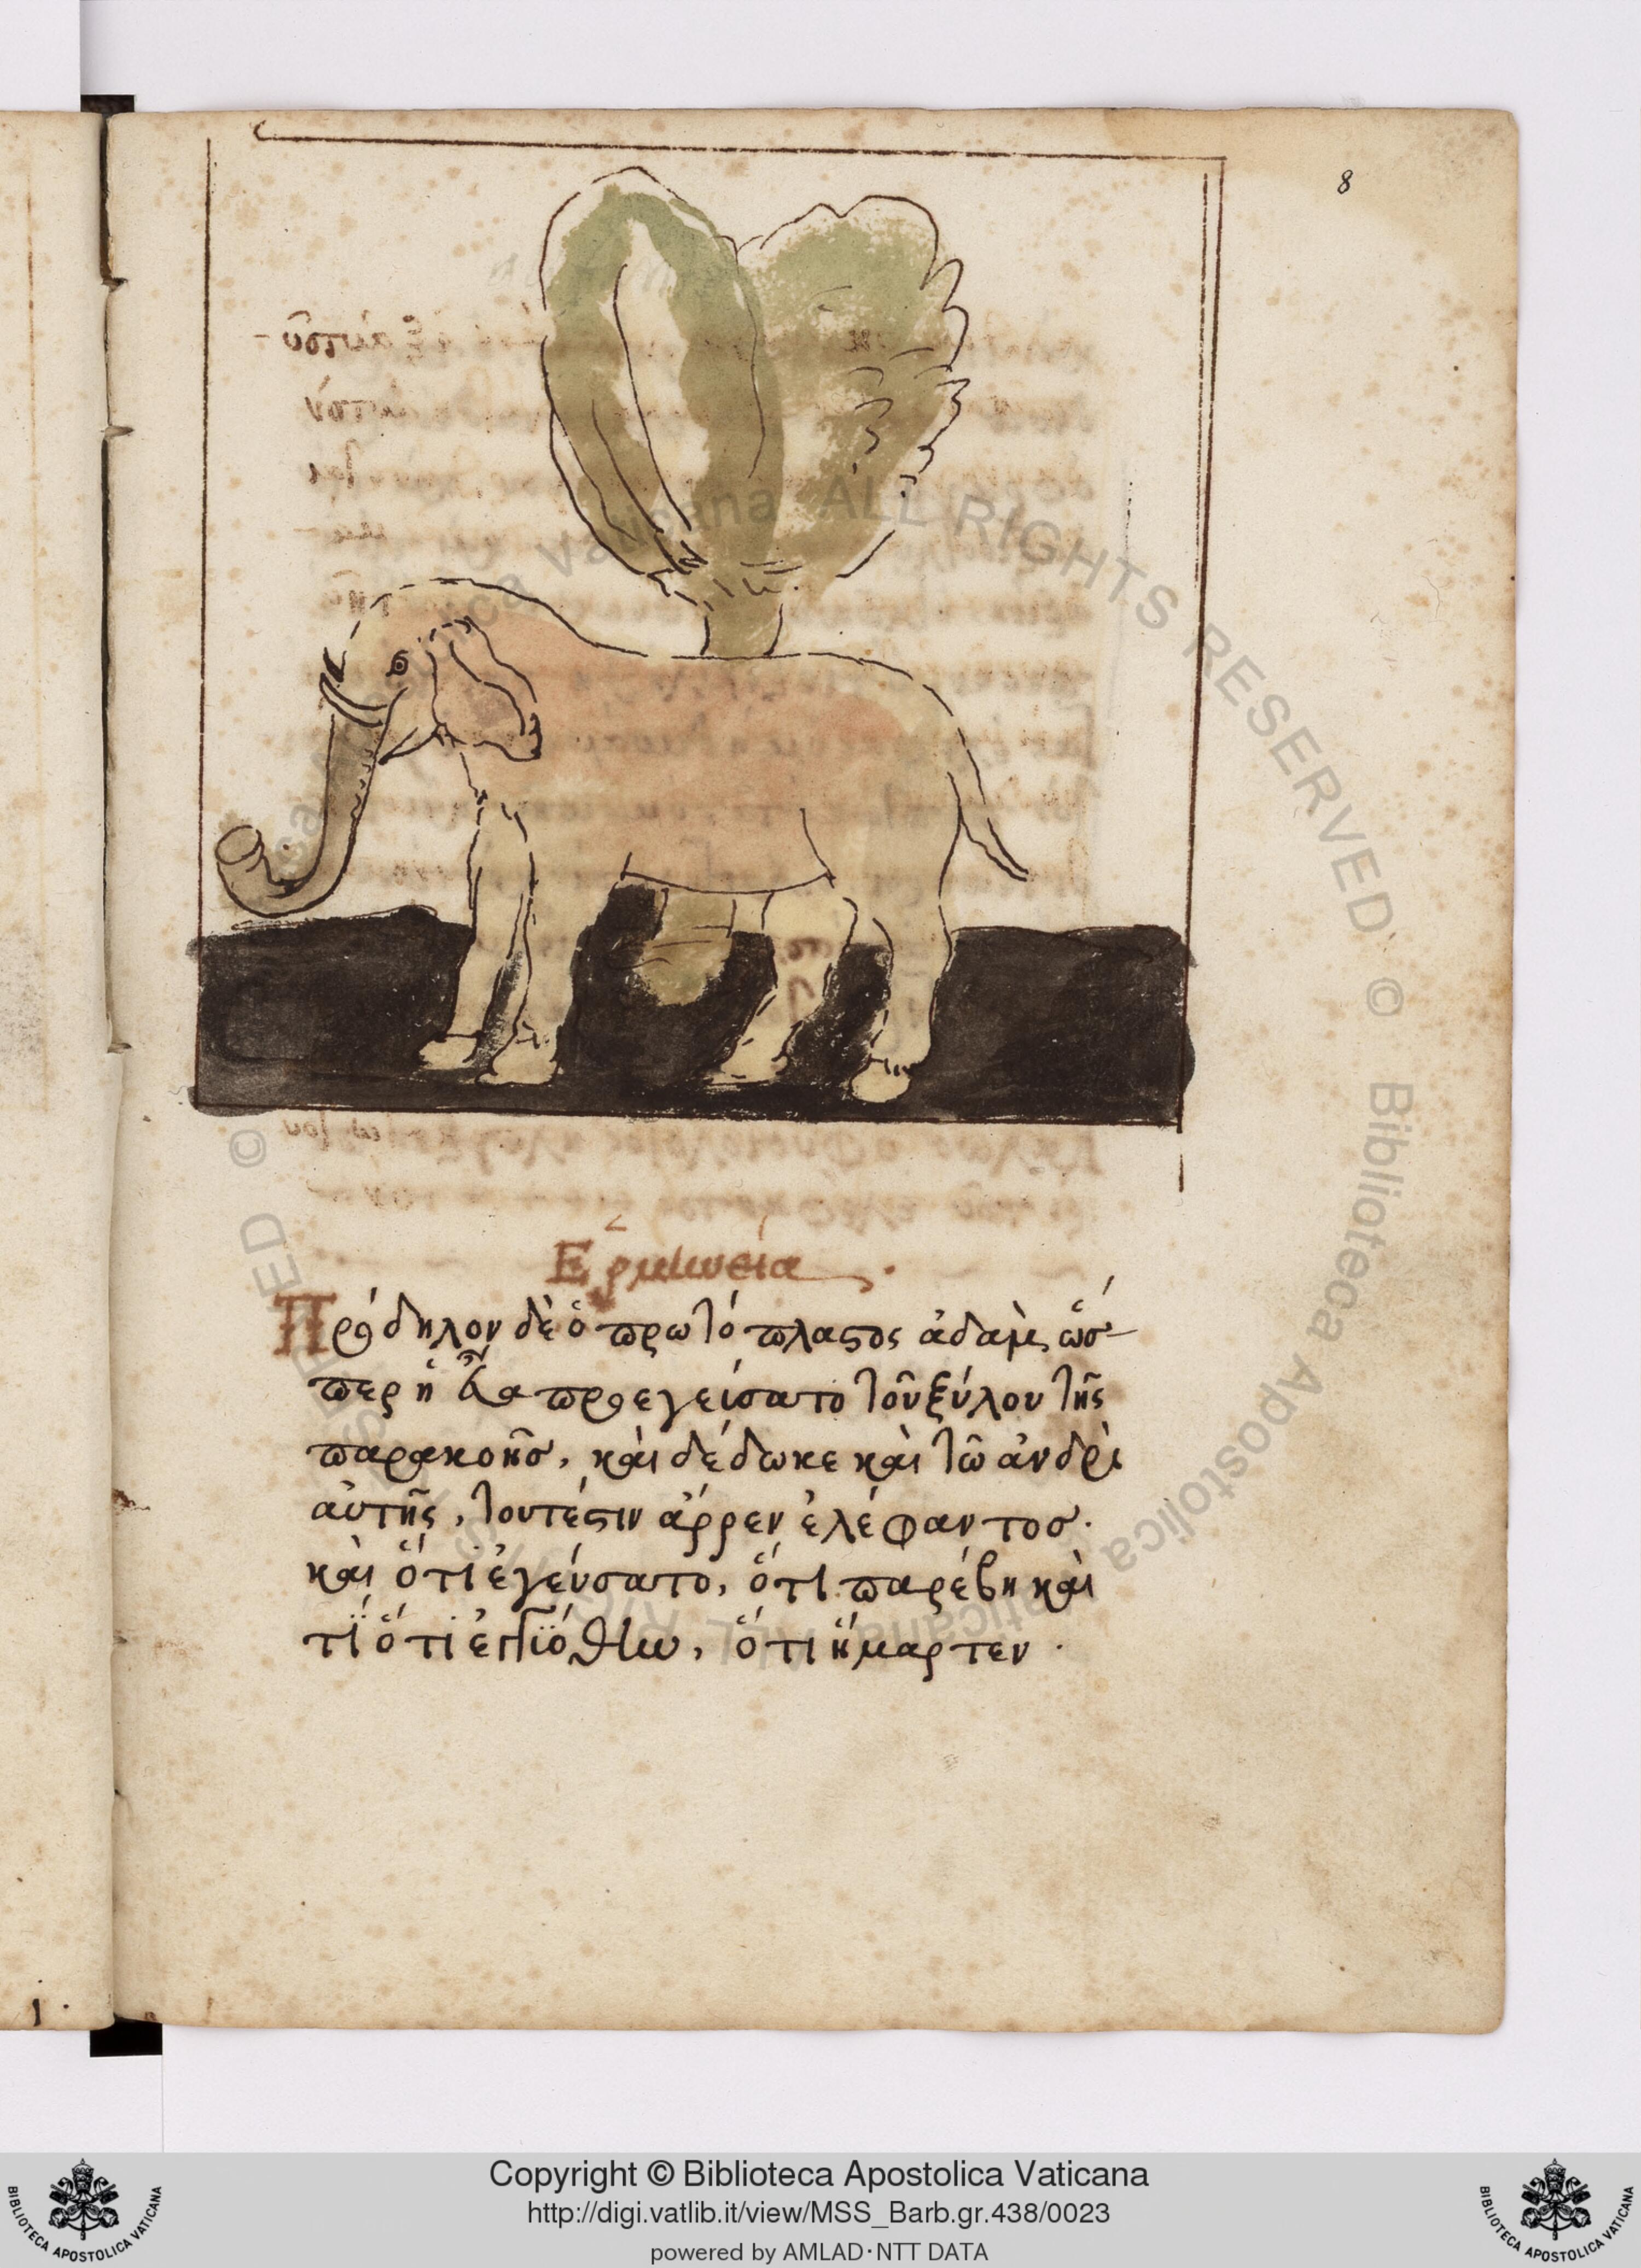 8
Ἑρμηνεία
Πρόδηλον δὲ ὁ πρωτόπλαστος ἀδὰμ, ὥσ-
περ ἡ εὔα προεγεύσατο τοῦ ξύλου τῆς
παρακοῆσ, καὶ δέδωκε καὶ τῶ ἀνδρὶ
αὐτῆς, τουτέστιν ἄρρεν ἐλέφαντοσ.
καὶ ὅτι ἐγεύσατο, ὅτι παρέβη καὶ
τί ὅτι ὅτι ἥμαρτεν.
Copyright © Biblioteca Apostolica Vaticana
http://digi.vatlib.it/view/MSS_Barb.gr.438/0023
powered by AMLAD·NTT DATA
BIBLIOTECA APOSTOLICA VATICANA
BIBLIOTECA APOSTOLICA VATICANA